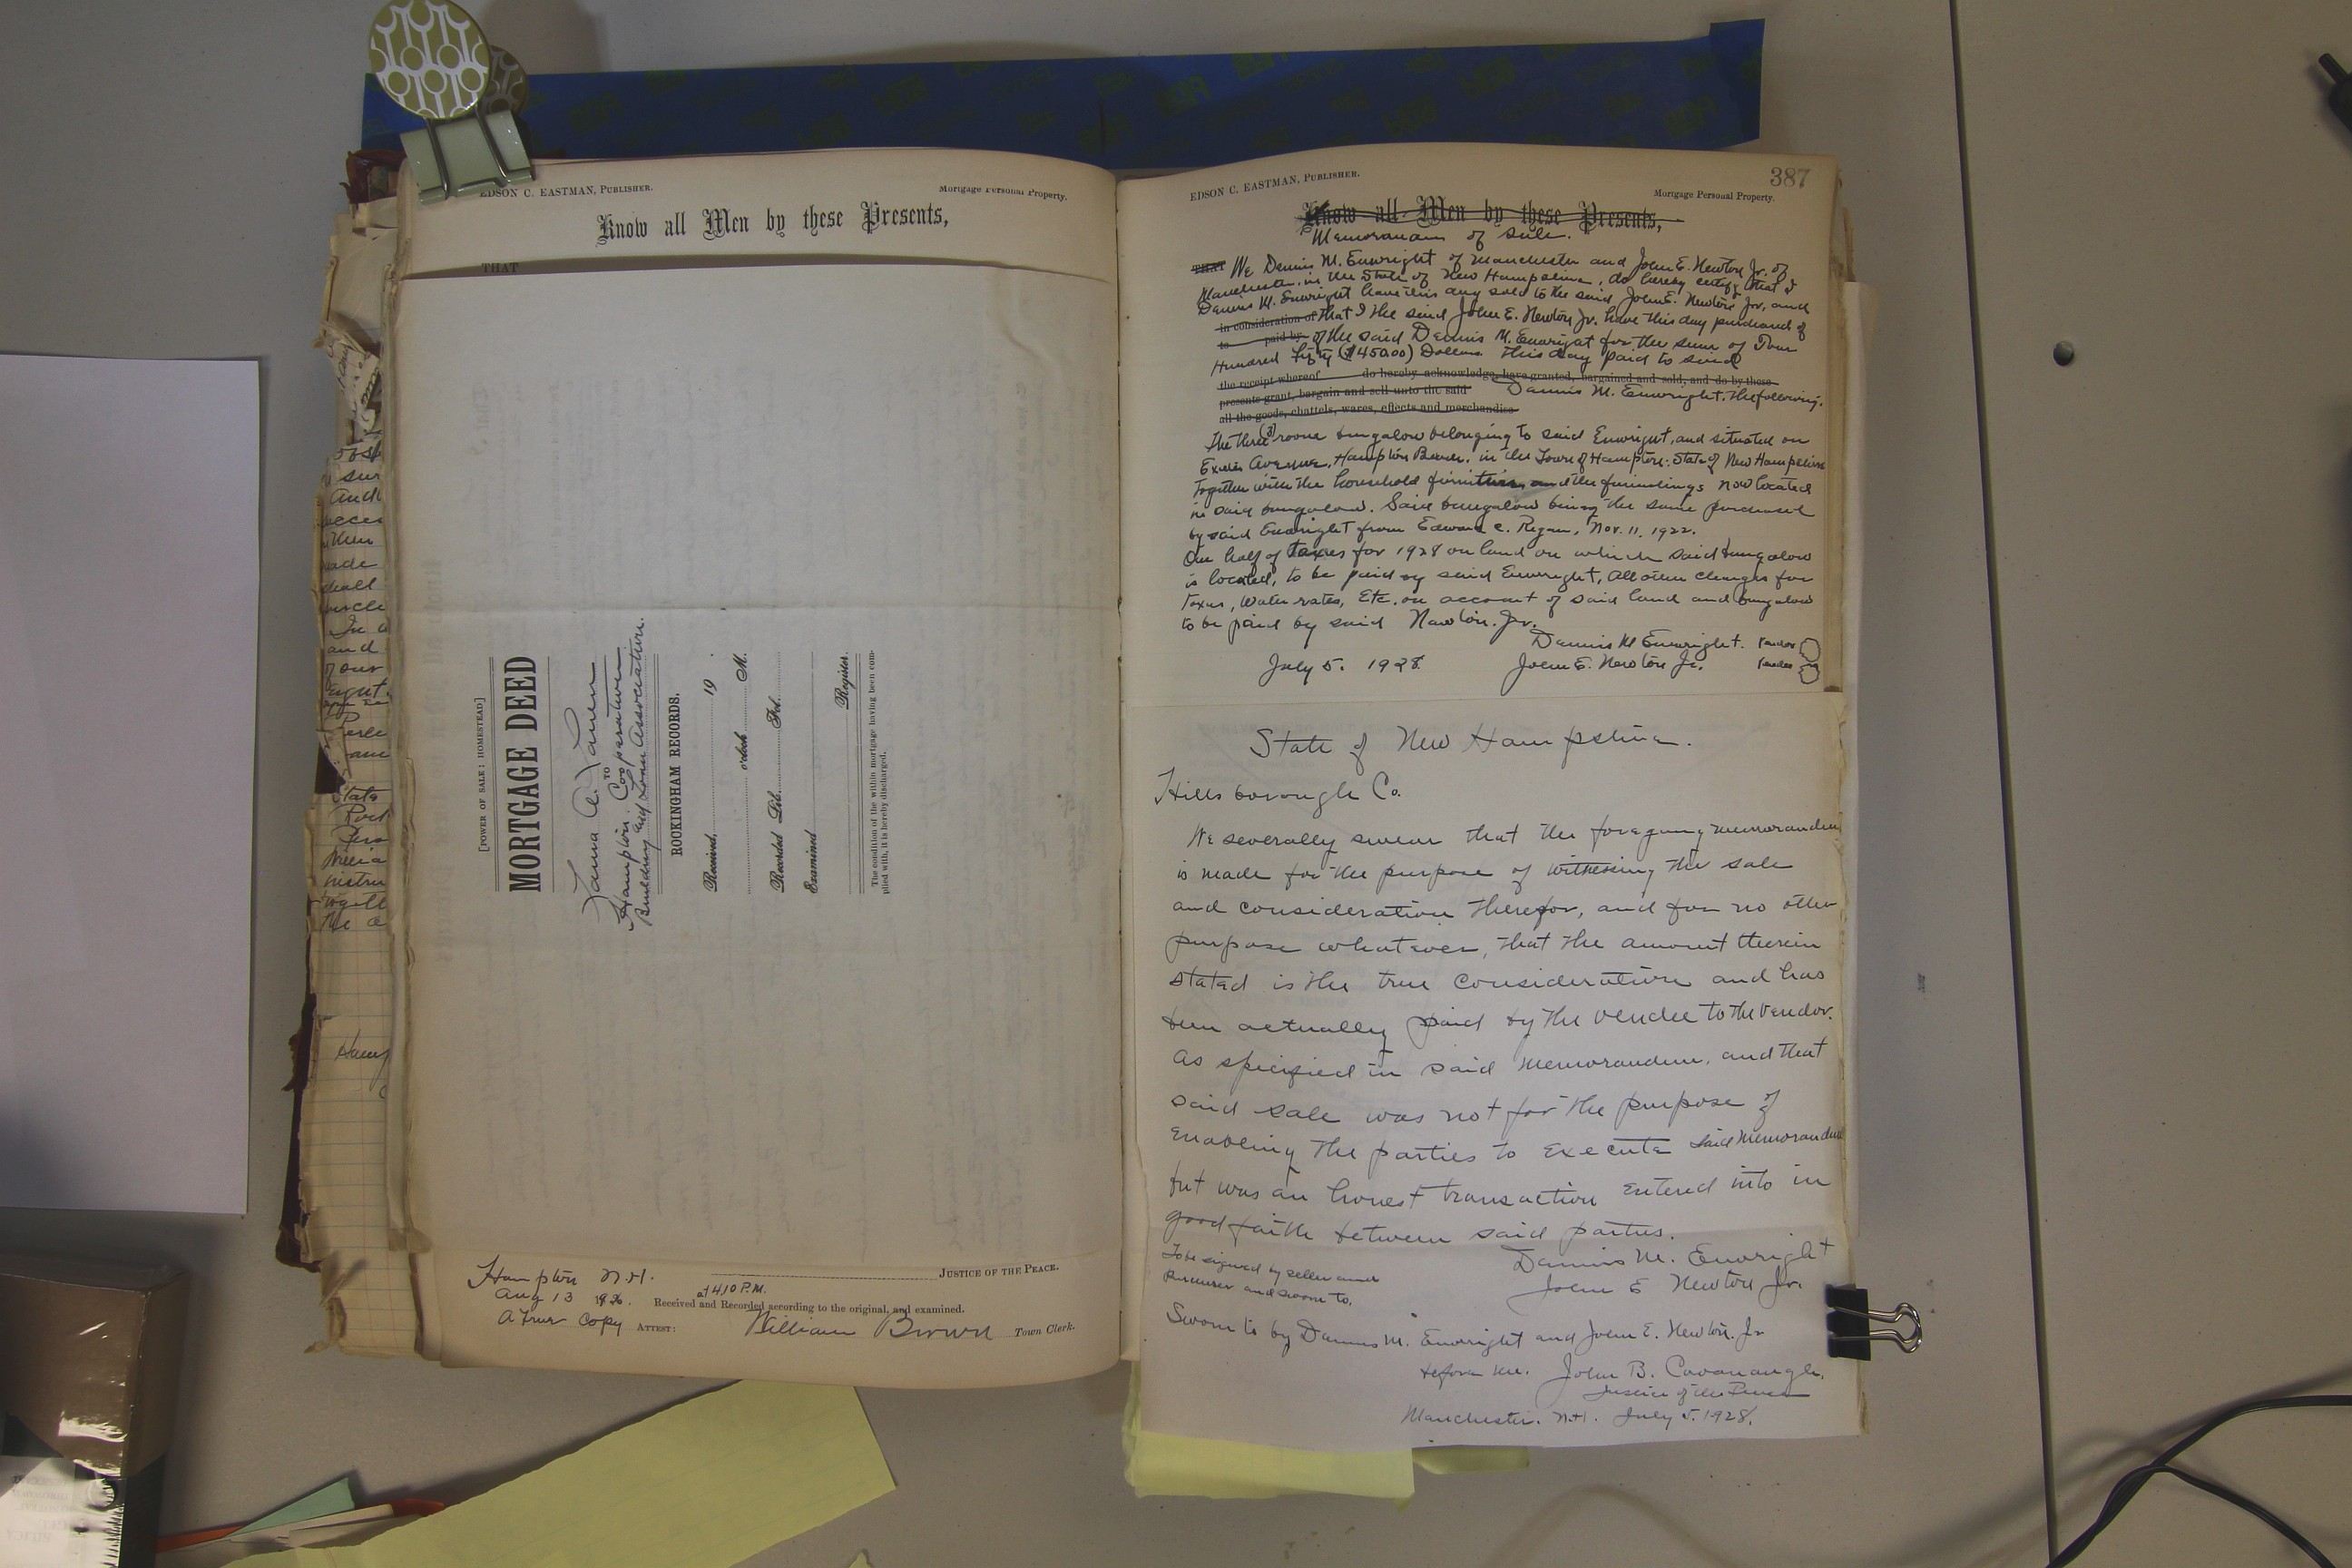 EDSON C. EASTMAN, PUBLISHER.
Mortgage Personal Property.
Know all Men by these Presents,
THAT
[POWER OF SALE: HOMESTEAD]
MORTGAGE DEED
TO
Hampton Cooperative
Building and Loan Association.
ROCKINGHAM RECORDS.
Received, 19 .
o'clock M.
Recorded Lib. Fol.
Examined
Register
The condition of the within mortgage having been com-
plied with, it is hereby discharged.
JUSTICE OF THE PEACE.
Hampton N.H.
Aug 13 1926. at 4.10 P.M.
Received and Recorded according to the original, and examined.
A True Copy ATTEST: William Brown Town Clerk.
387
EDSON C. EASTMAN, PUBLISHER.
Mortgage Personal Property.
Know all Men by these Presents,
Memorandum of sale.
THAT We Dennis M. Enwright of Manchester and John E. Newton Jr. of
Manchester in the State of New Hampshire, do hereby certify that I
Dennis M. Enwright have this day sold to the said John E. Newton Jr, and
in consideration of that I the said John E. Newton Jr. have this day purchased of
to paid by of the said Dennis M. Enwright for the sum of Four
Hundred fifty ($450.00) Dollars this day paid to said
the receipt whereof do hereby acknowledge, have granted, bargained and sold, and do by these
presents grant, bargain and sell unto the said Dennis M. Enwright, the following.
all the goods, chattels, wares, effects and merchandise
The three (3) room bungalow belonging to said Enwright, and situated on
Exeter Avenue, Hampton Beach, in the Town of Hampton, State of New Hampshire
together with the household furniture and the furnishings now located
in said bungalow. Said bungalow being the same purchased
by said Enwright from Edward C. Regan, Nov. 11, 1922.
One half of taxes for 1928 on land on which said bungalow
is located, to be paid by said Enwright, All other charges for
taxes, water rates, Etc. on account of said land and bungalow
to be paid by said Newton. Jr.
Dennis M Enwright. Vendor
July 5. 1928. John E. Newton Jr. Vendee
State of New Hampshire.
Hillsborough Co.
We severally swear that the foregoing memorandum
is made for the purpose of witnessing the sale
and consideration therefor, and for no other
purpose whatever, that the amount therein
stated is the true consideration and has
been actually paid by the vendee to the vendor.
as specified in said memorandum, and that
said sale was not for the purpose of
enabling the parties to execute said memorandum
but was an honest transaction entered into in
good faith between said parties.
Dennis M. Enwright
To be signed by seller and
John E Newton Jr.
purchaser and sworn to.
Sworn to by Dennis M. Enwright and John E. Newton. Jr
before me. John B. Cavanaugh,
Justice of the Peace
Manchester. N.H. July 5. 1928.